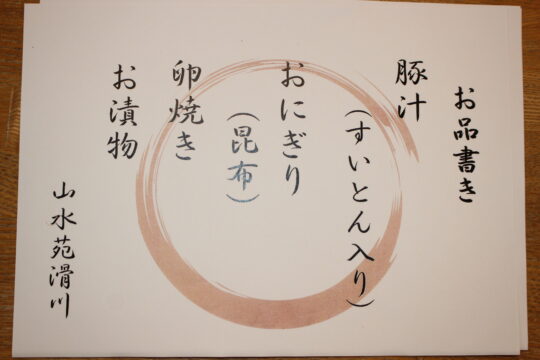 お品書き
豚汁
(すいとん入り)
おにぎり
(昆布)
卵焼き
お漬物
山水苑滑川